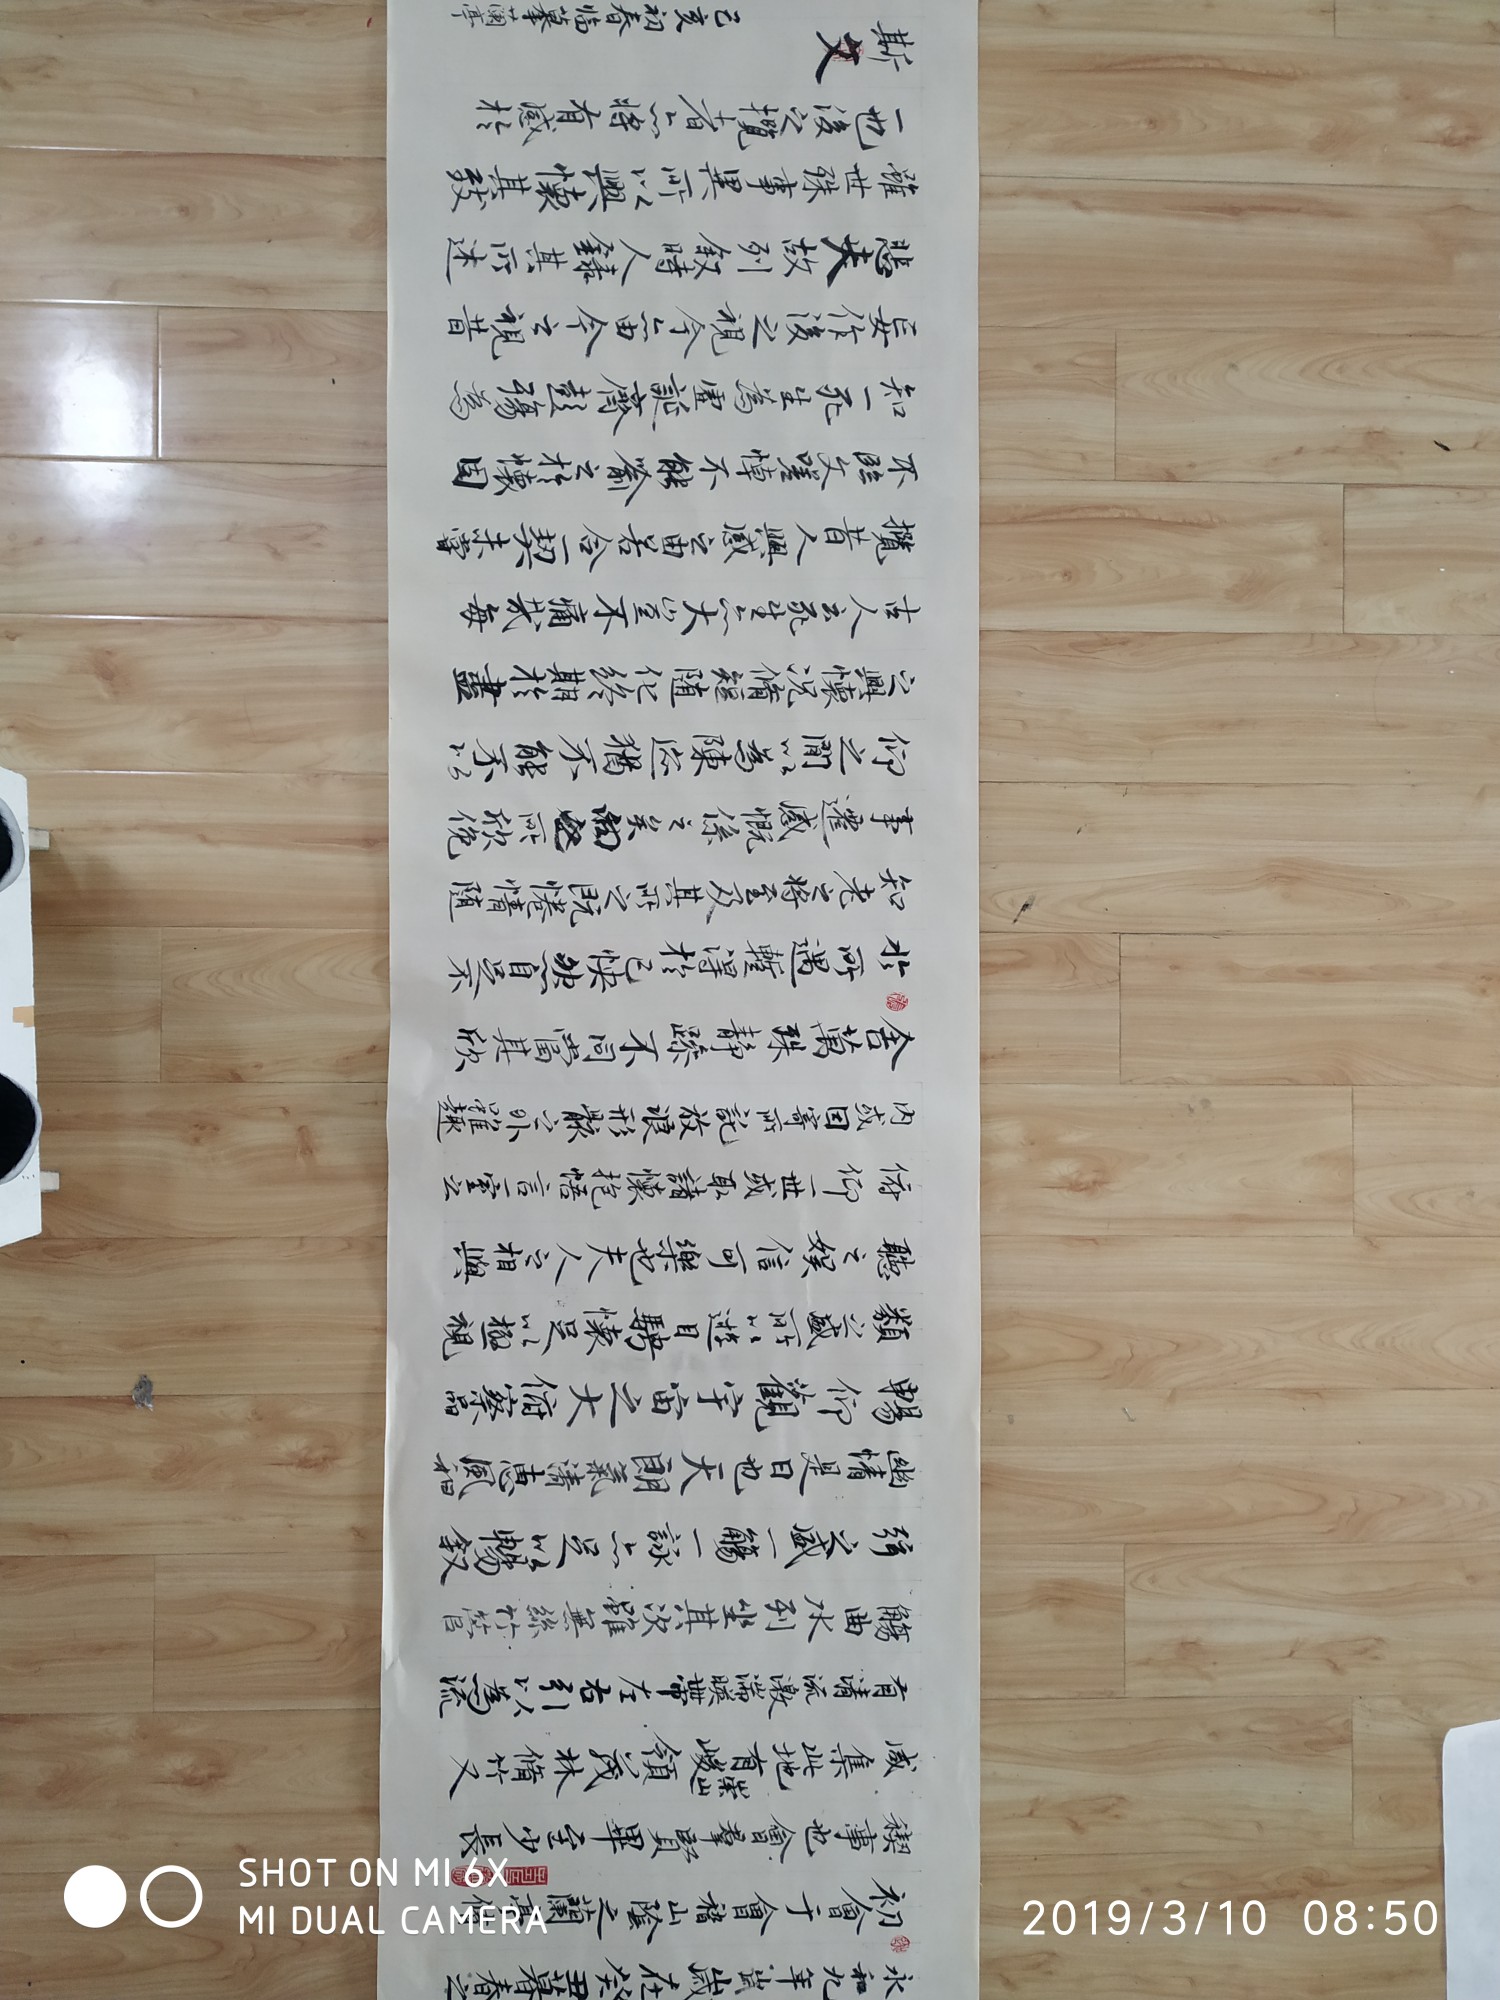 永和九年歲在癸丑暮春之
初會于會稽山陰之蘭亭脩
禊事也羣賢畢至少長
咸集此地有崇山峻領茂林脩竹又
有清流激湍暎帶左右引以為流
觴曲水列坐其次雖無絲竹管
弦之盛一觴一詠亦足以暢敘
幽情是日也天朗氣清惠風和
暢仰觀宇宙之大俯察品
類之盛所以遊目騁懷足以極視
聽之娛信可樂也夫人之相與
俯仰一世或取諸懷抱悟言一室之
內或因寄所託放浪形骸之外雖趣
舍萬殊靜躁不同當其欣
於所遇暫得於己快然自足不
知老之將至及其所之既惓情隨
事遷感慨係之矣向之所欣俛
仰之間以為陳迹猶不能不以
之興懷況脩短隨化終期於盡
古人云死生亦大矣豈不痛哉每
攬昔人興感之由若合一契未嘗
不臨文嗟悼不能喻之於懷固
知一死生為虛誕齊彭殤為
妄作後之視今亦由今之視昔
悲夫故列敘時人錄其所述
雖世殊事異所以興懷其致
一也後之攬者亦將有感於
斯文
己亥初春臨摹蘭亭
SHOT ON MI 6X
MI DUAL CAMERA
2019/3/10 08:50